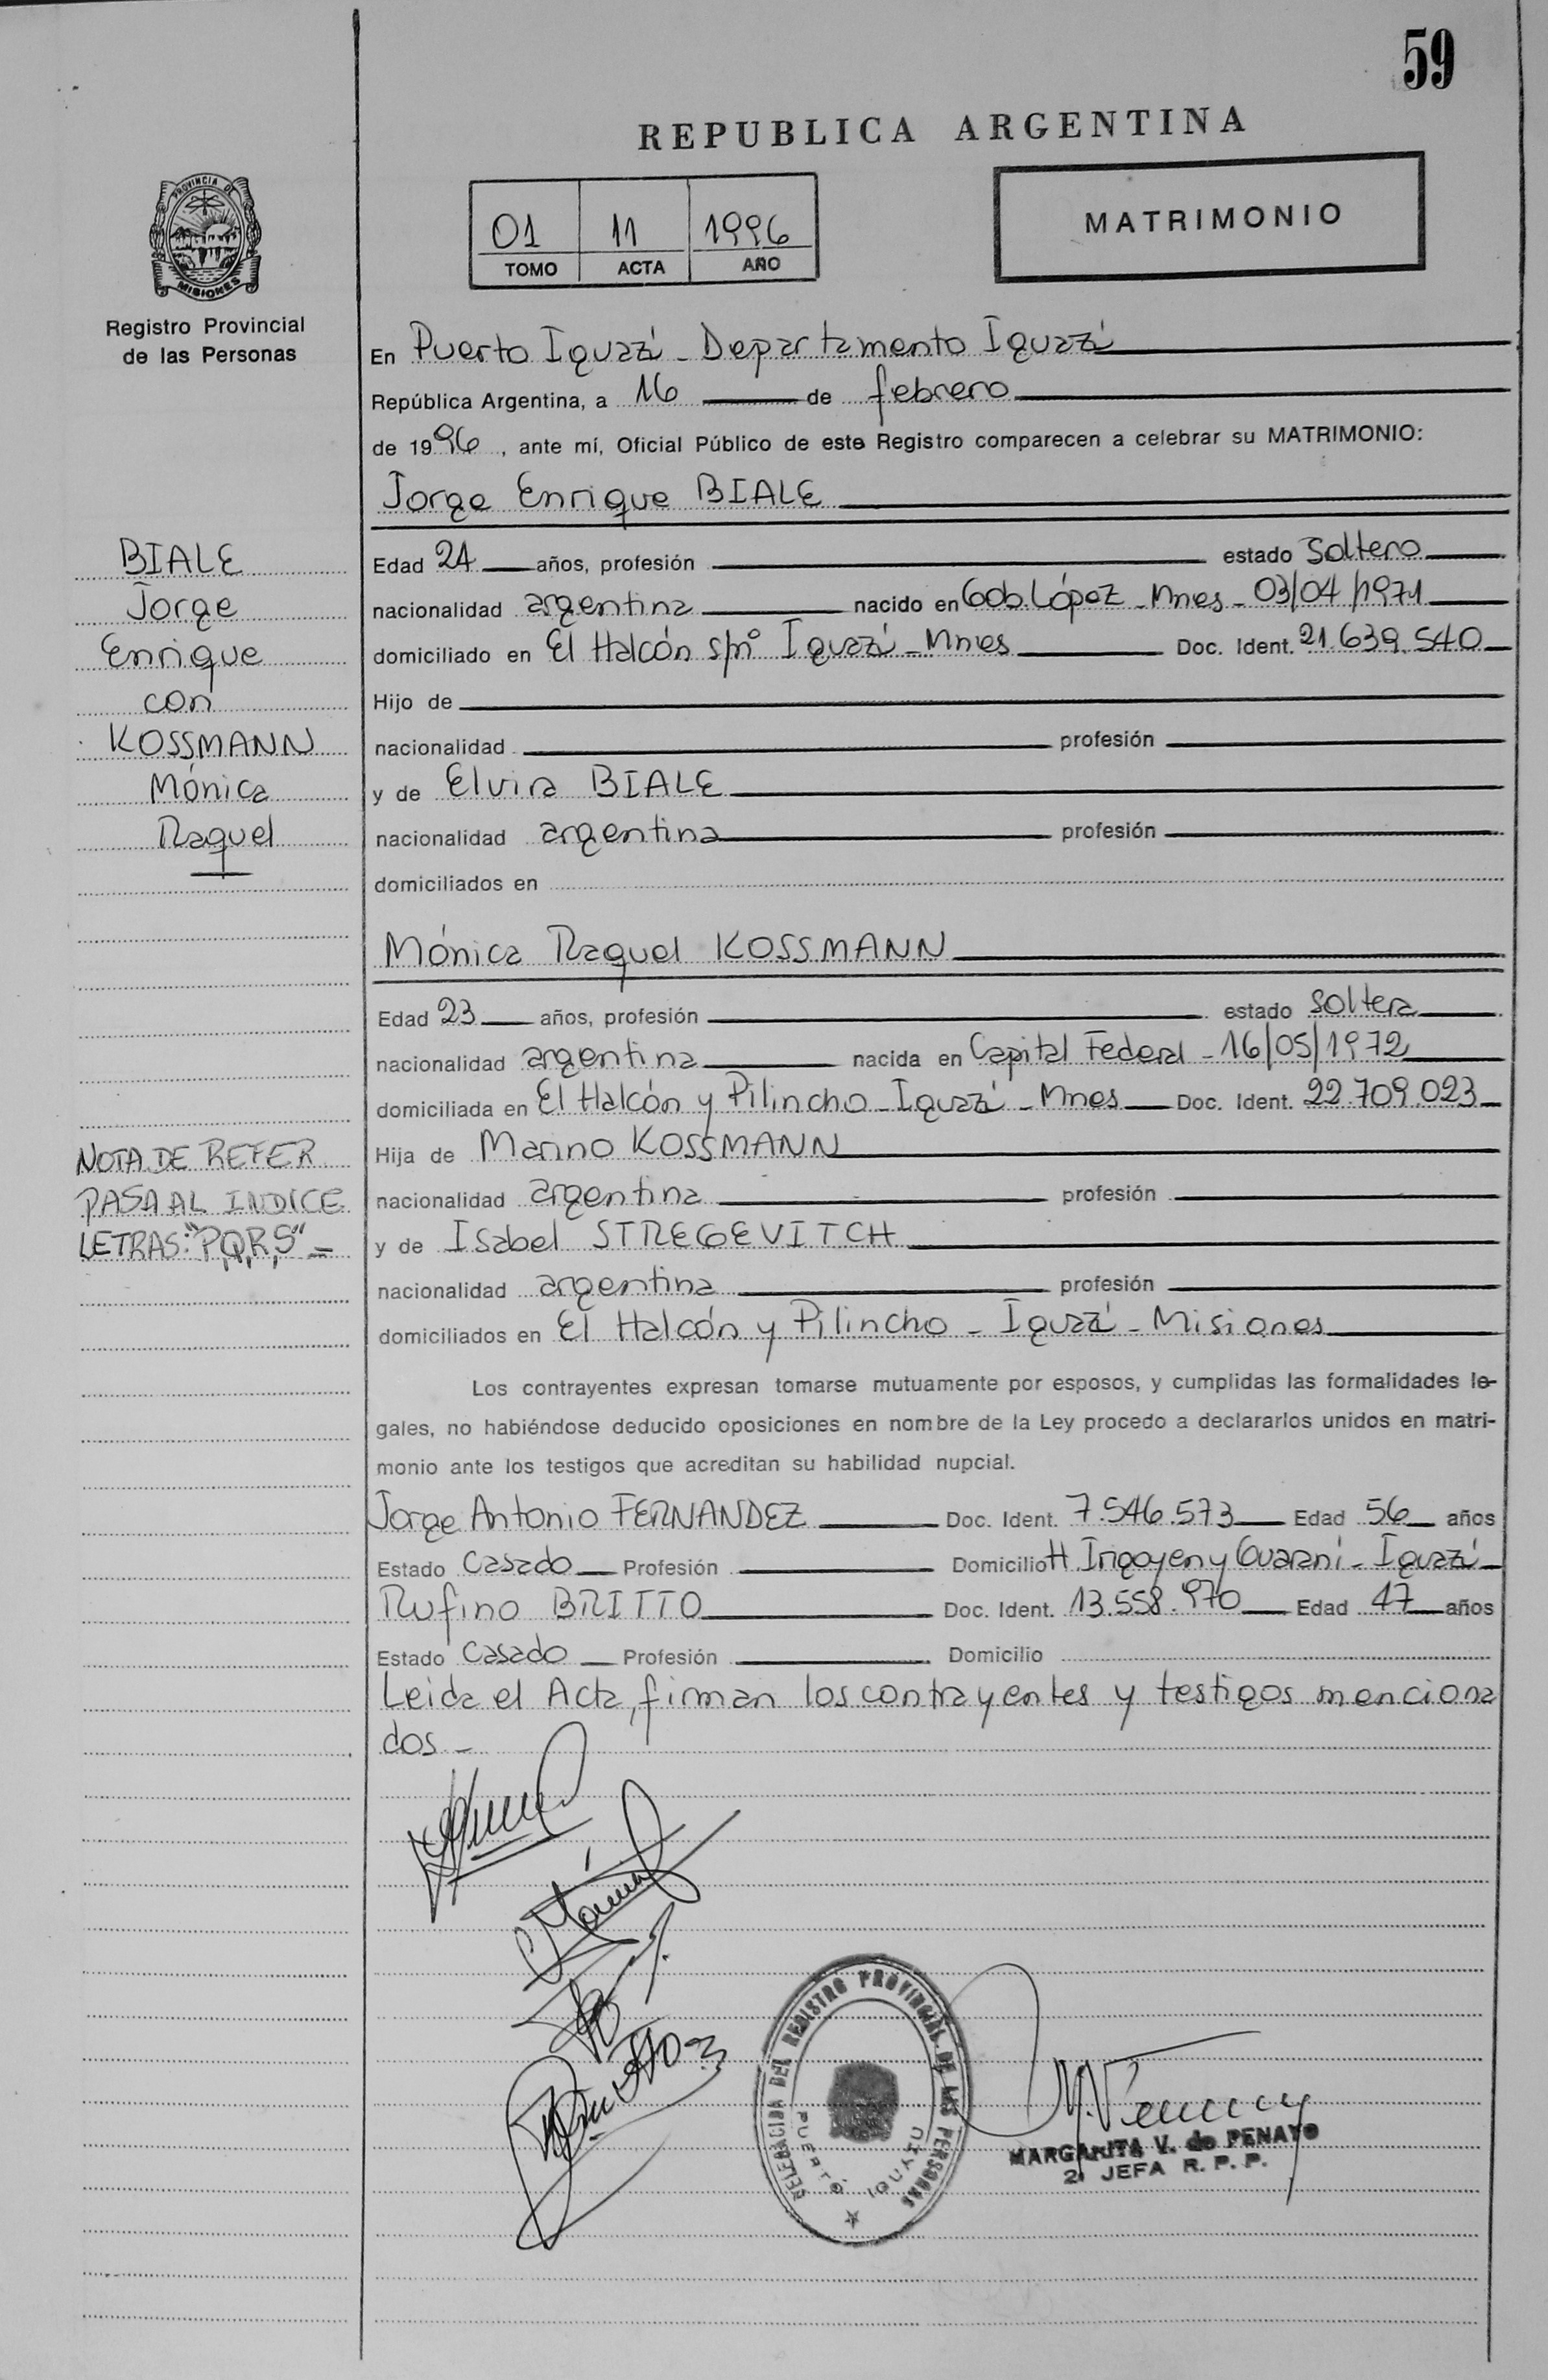 59
REPUBLICA ARGENTINA
01 11 1996
TOMO ACTA AÑO
MATRIMONIO
PROVINCIA DE
MISIONES
Registro Provincial
de las Personas
En Puerto Iguazú - Departamento Iguazú
República Argentina, a 16 de febrero
de 1996, ante mí, Oficial Público de este Registro comparecen a celebrar su MATRIMONIO:
Jorge Enrique BIALE
Edad 24 años, profesión estado Soltero
nacionalidad argentina nacido en Gob. López - Mnes - 03/04/1971
domiciliado en El Halcón s/nº Iguazú - Mnes Doc. Ident. 21.639.540
Hijo de
nacionalidad profesión
y de Elvira BIALE
nacionalidad argentina profesión
domiciliados en
BIALE
Jorge
Enrique
con
KOSSMANN
Mónica
Raquel
Mónica Raquel KOSSMANN
Edad 23 años, profesión estado soltera
nacionalidad argentina nacida en Capital Federal - 16/05/1972
domiciliada en El Halcón y Pilincho - Iguazú - Mnes Doc. Ident. 22.709.023
Hija de Marino KOSSMANN
nacionalidad argentina profesión
y de Isabel STREGEVITCH
nacionalidad argentina profesión
domiciliados en El Halcón y Pilincho - Iguazú - Misiones
NOTA DE REFER
PASA AL INDICE
LETRAS: "P,Q,R,S" -
Los contrayentes expresan tomarse mutuamente por esposos, y cumplidas las formalidades le-
gales, no habiéndose deducido oposiciones en nombre de la Ley procedo a declararlos unidos en matri-
monio ante los testigos que acreditan su habilidad nupcial.
Jorge Antonio FERNANDEZ Doc. Ident. 7.546.573 Edad 56 años
Estado Casado Profesión Domicilio H Irigoyen y Guaraní - Iguazú
Rufino BRITTO Doc. Ident. 13.558.970 Edad 47 años
Estado Casado Profesión Domicilio
Leida el Acta, firman los contrayentes y testigos menciona
dos -
DELEGACION DEL REGISTRO PROVINCIAL DE LAS PERSONAS
PUERTO IGUAZU
MARGARITA V. de PENAYO
2ª JEFA R. P. P.